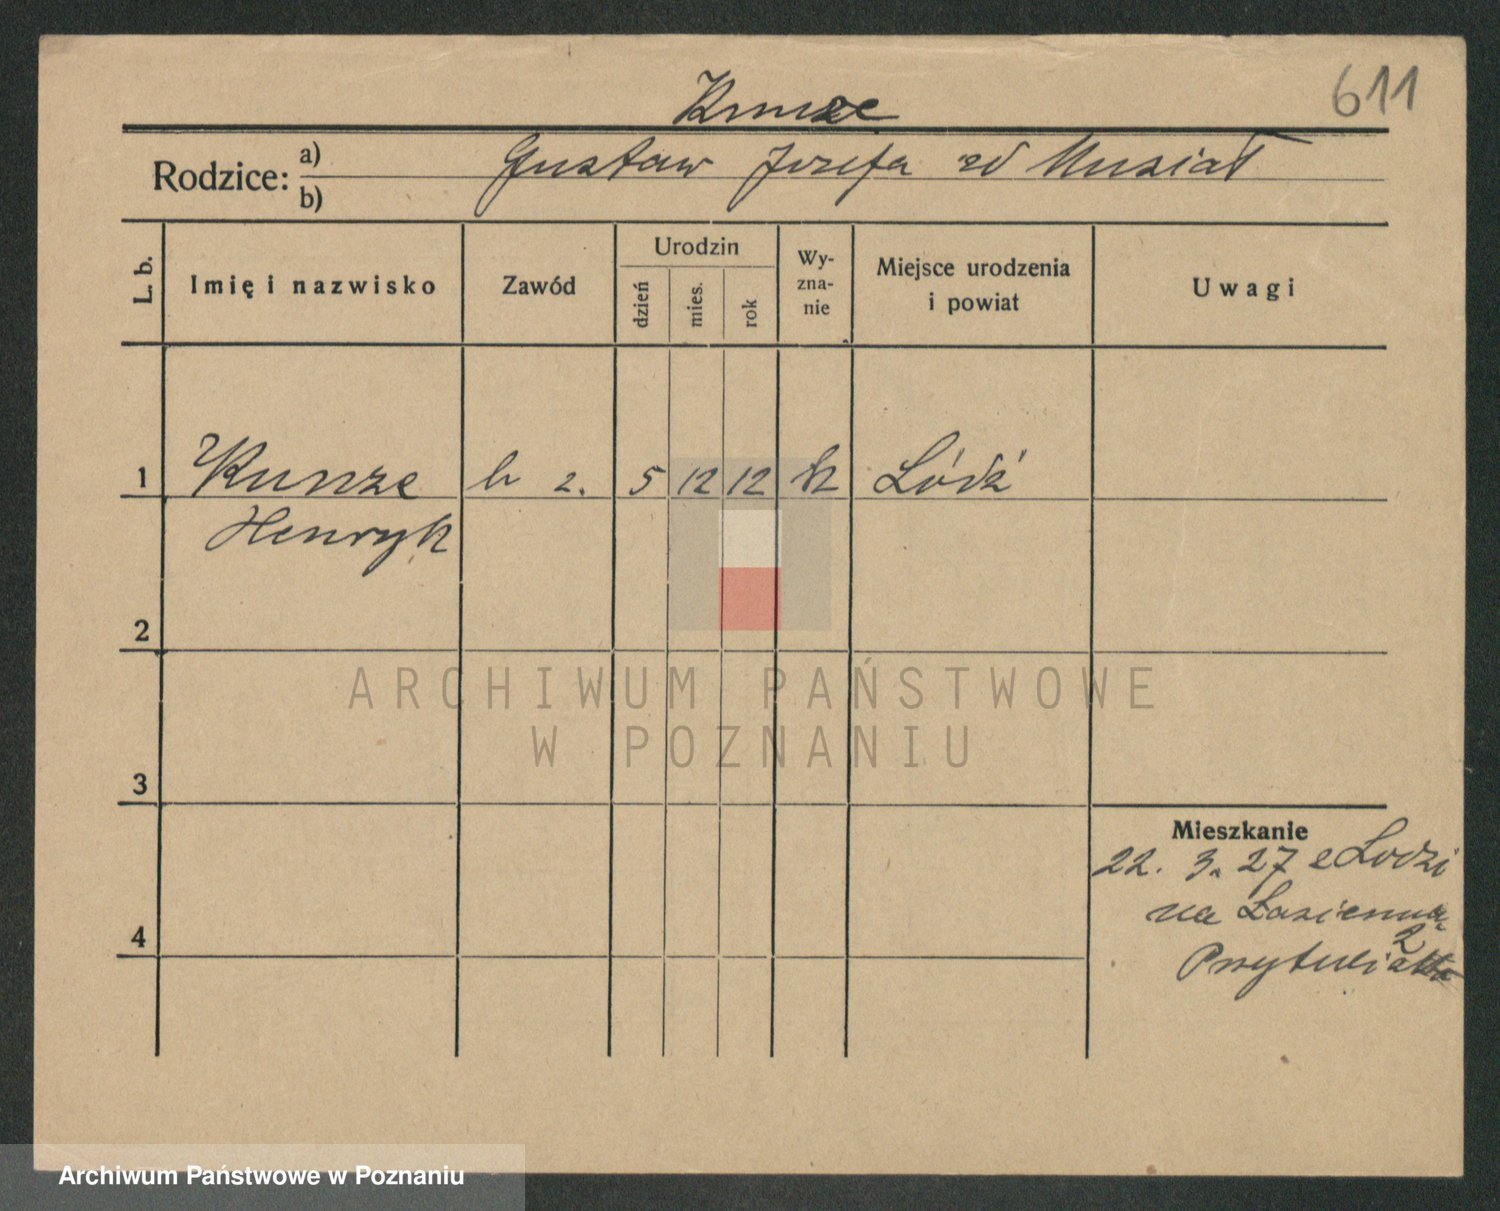 611
Kunze
Rodzice: a) Gustaw Józefa zd Musiał
b)
L. b.
Imię i nazwisko
Zawód
Urodzin
dzień
mies.
rok
Wy-
zna-
nie
Miejsce urodzenia
i powiat
Uwagi
1 Kunze b z. 5 12 12 k Łódź
Henryk
2
3
4
Mieszkanie
22. 3. 27 z Łodzi
na Łazienna
2
ARCHIWUM PAŃSTWOWE
W POZNANIU
Archiwum Państwowe w Poznaniu